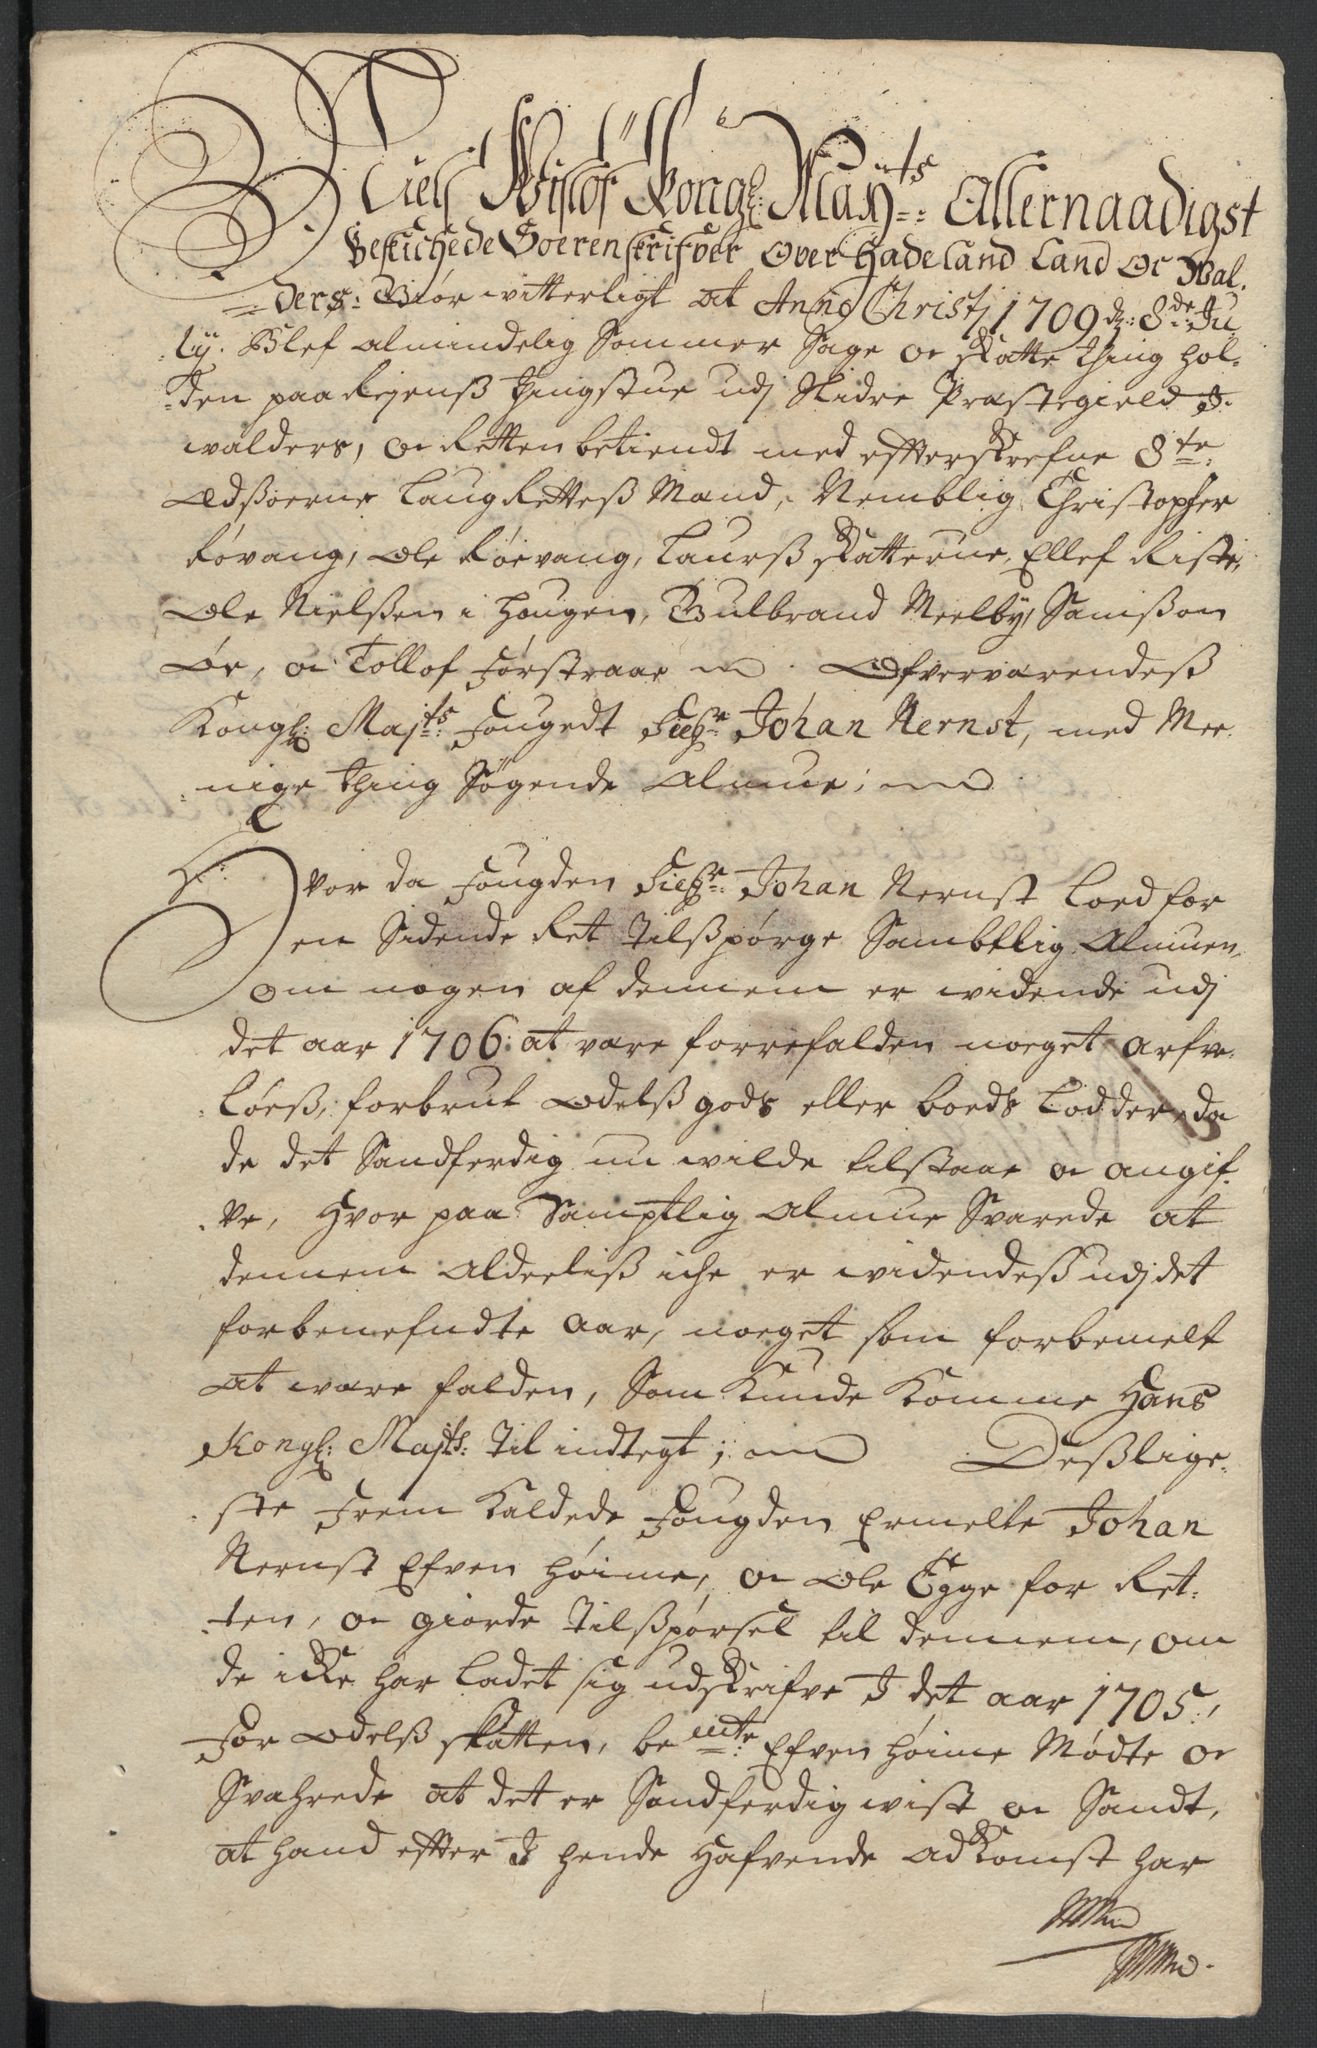 Niels Wislöf Kongl: May:ts Allernaadigst
Beskichede Soerenskrifver Over Hadeland Land Oc Wal-
ders: Giör witterligt at Anno Christj 1709 dz: 8de Ju-
ly. Blef almindelig Sommer Sage oc skatte thing hol-
den paa Rejenß thingstue udj Slidre Præstegield J.
walders, oc Retten betiendt med effterskrefne 8te:
Edßoerne Laug Retteß Mænd, Nemblig Christopher
Røvang, Ole Røevang, Laurß skatterue, Ellef Riste,
Ole Nielßen i Hougen, Gulbrand Meelby, Samßon
Øe, oc Tollof Jørstraae Ofverværendeß
Kongl: Maj:ts Fougedt Sieg:r Johan Nernst, med Mee-
nige thing Søgende Almue;
Hvor da Fougden Sieg:r Johan Nernst Loed for
en Sidende Ret Tilßpørge Samblig Almuen,
om nogen af dennem er widende udj
det aar 1706: at være forrefalden noeget arfve-
løeß, forbrut Odelß gods eller boeds Lodder, da
de det Sandferdig nu wilde tilstaae oc angif-
ve, Hvor paa Samptlig Almue Svarede at
dennem Alderliß iche er widendeß udj det
forbenefndte aar, noeget som forbemelt
at være falden, Som Kunde Komme Hans
Kongl: Majts: Til indtegt; Deßlige-
ste Frem Kaldede Fougden Ermelte Johan
Nernst Efven Høime, oc Ole Egge for Ret-
ten, oc giorde Tilßpørsel til dennem, om
de icke har Ladet sig udskrifve J det aar 1705,
For Odelß skatten, bemte: Efven Høime Mødte oc
Svahrede at det er Sandferdig wist oc Sandt,
at hand effter J hende Hafvende adkomst har